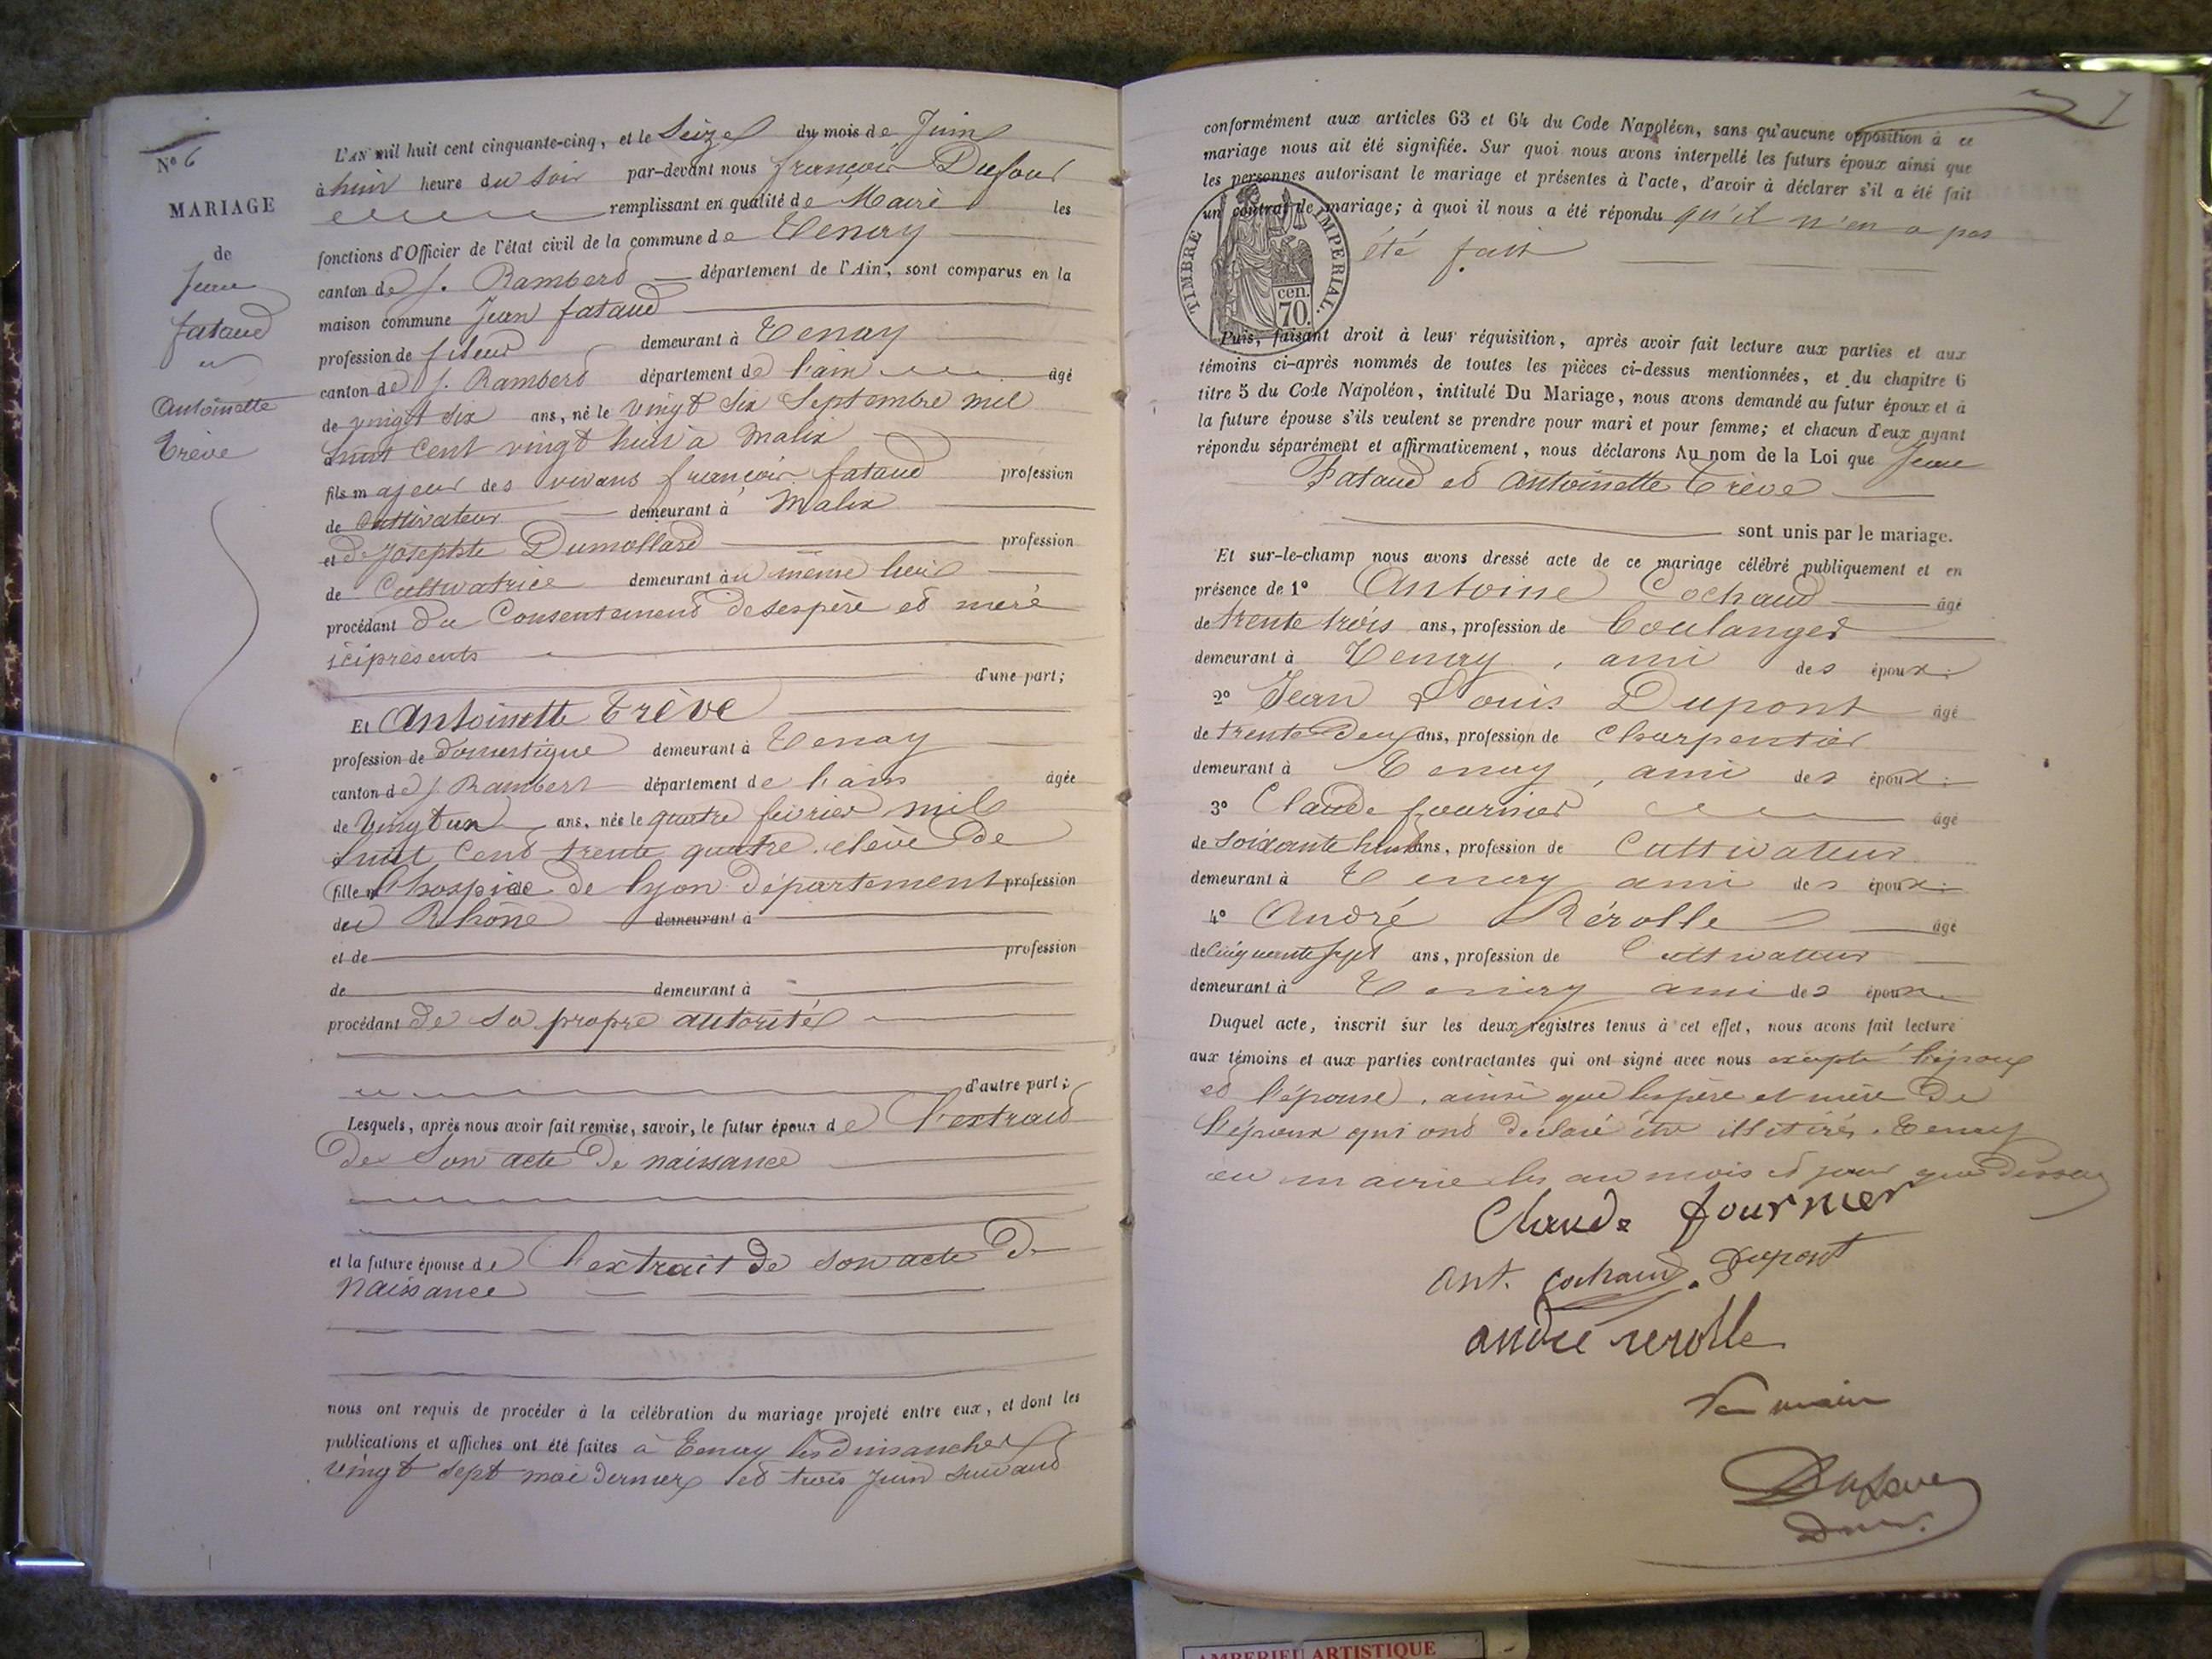 N° 6
MARIAGE
de
Jean
fataud
et
Antoinette
Trève
L'AN mil huit cent cinquante-cinq, et le Seize du mois de Juin
à huit heure du soir par-devant nous françois Dufour
remplissant en qualité de Maire les
fonctions d'Officier de l'état civil de la commune de Tenay
canton de S. Rambert département de l'Ain, sont comparus en la
maison commune Jean fataud
profession de fileur demeurant à Tenay
canton de S. Rambert département de l'ain âgé
de vingt six ans, né le vingt six Septembre mil
huit cent vingt huit à Malix
fils majeur des vivans françois fataud profession
de Cultivateur demeurant à Malix
et de Josephte Dumollard profession
de Cultivatrice demeurant au même lieu
procédant du Consentement de ses père et mère
ici présents
d'une part;
Et Antoinette Trève
profession de domestique demeurant à Tenay
canton de S. Rambert département de l'ain âgée
de vingt un ans, née le quatre février mil
huit Cent trente quatre élève de
fille l'hospice de Lyon département profession
du Rhône demeurant à
et de profession
de demeurant à
procédant de sa propre autorité
d'autre part;
Lesquels, après nous avoir fait remise, savoir, le futur époux de l'extrait
de Son acte De naissance
et la future épouse de l'extrait de son acte de
naissance
nous ont requis de procéder à la célébration du mariage projeté entre eux, et dont les
publications et affiches ont été faites à Tenay les dimanches
vingt sept mai dernier et trois Juin suivant
7
conformément aux articles 63 et 64 du Code Napoléon, sans qu'aucune opposition à ce
mariage nous ait été signifiée. Sur quoi nous avons interpellé les futurs époux ainsi que
les personnes autorisant le mariage et présentes à l'acte, d'avoir à déclarer s'il a été fait
un contrat de mariage; à quoi il nous a été répondu qu'il n'en a pas
été fait
TIMBRE IMPERIAL.
cen.
70.
Puis, faisant droit à leur réquisition, après avoir fait lecture aux parties et aux
témoins ci-après nommés de toutes les pièces ci-dessus mentionnées, et du chapitre 6
titre 5 du Code Napoléon, intitulé Du Mariage, nous avons demandé au futur époux et à
la future épouse s'ils veulent se prendre pour mari et pour femme; et chacun d'eux ayant
répondu séparément et affirmativement, nous déclarons Au nom de la Loi que Jean
Fataud et Antoinette Trève
sont unis par le mariage.
Et sur-le-champ nous avons dressé acte de ce mariage célébré publiquement et en
présence de 1° Antoine Cochaud âgé
de trente trois ans, profession de boulanger
demeurant à Tenay, ami des époux:
2° Jean Louis Dupont âgé
de trente deux ans, profession de Charpentier
demeurant à Tenay, ami des époux:
3° Claude fournier âgé
de soixante huit ans, profession de Cultivateur
demeurant à Tenay ami des époux:
4° André Rérolle âgé
de Cinquante sept ans, profession de Cultivateur
demeurant à Tenay ami des époux.
Duquel acte, inscrit sur les deux registres tenus à cet effet, nous avons fait lecture
aux témoins et aux parties contractantes qui ont signé avec nous excepté l'époux
et l'épouse, ainsi que les père et mère de
l'époux qui ont déclaré être illitérés. Tenay
en mairie les an mois et jour que dessus
Claude fournier
ant. cochaud. Dupont
andré rerolle
Le maire
Dufour
AMBERIEU ARTISTIQUE